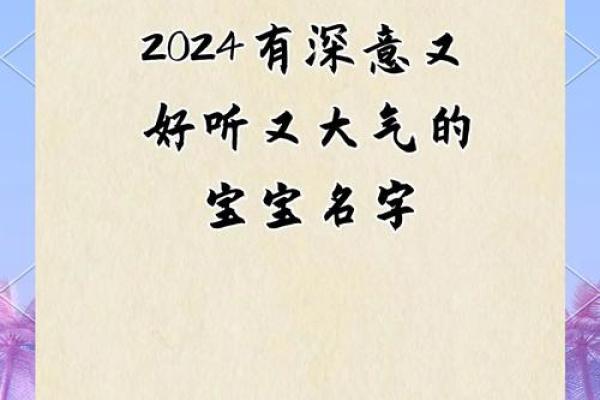 2024有深意又
好听又大气的
宝宝名字